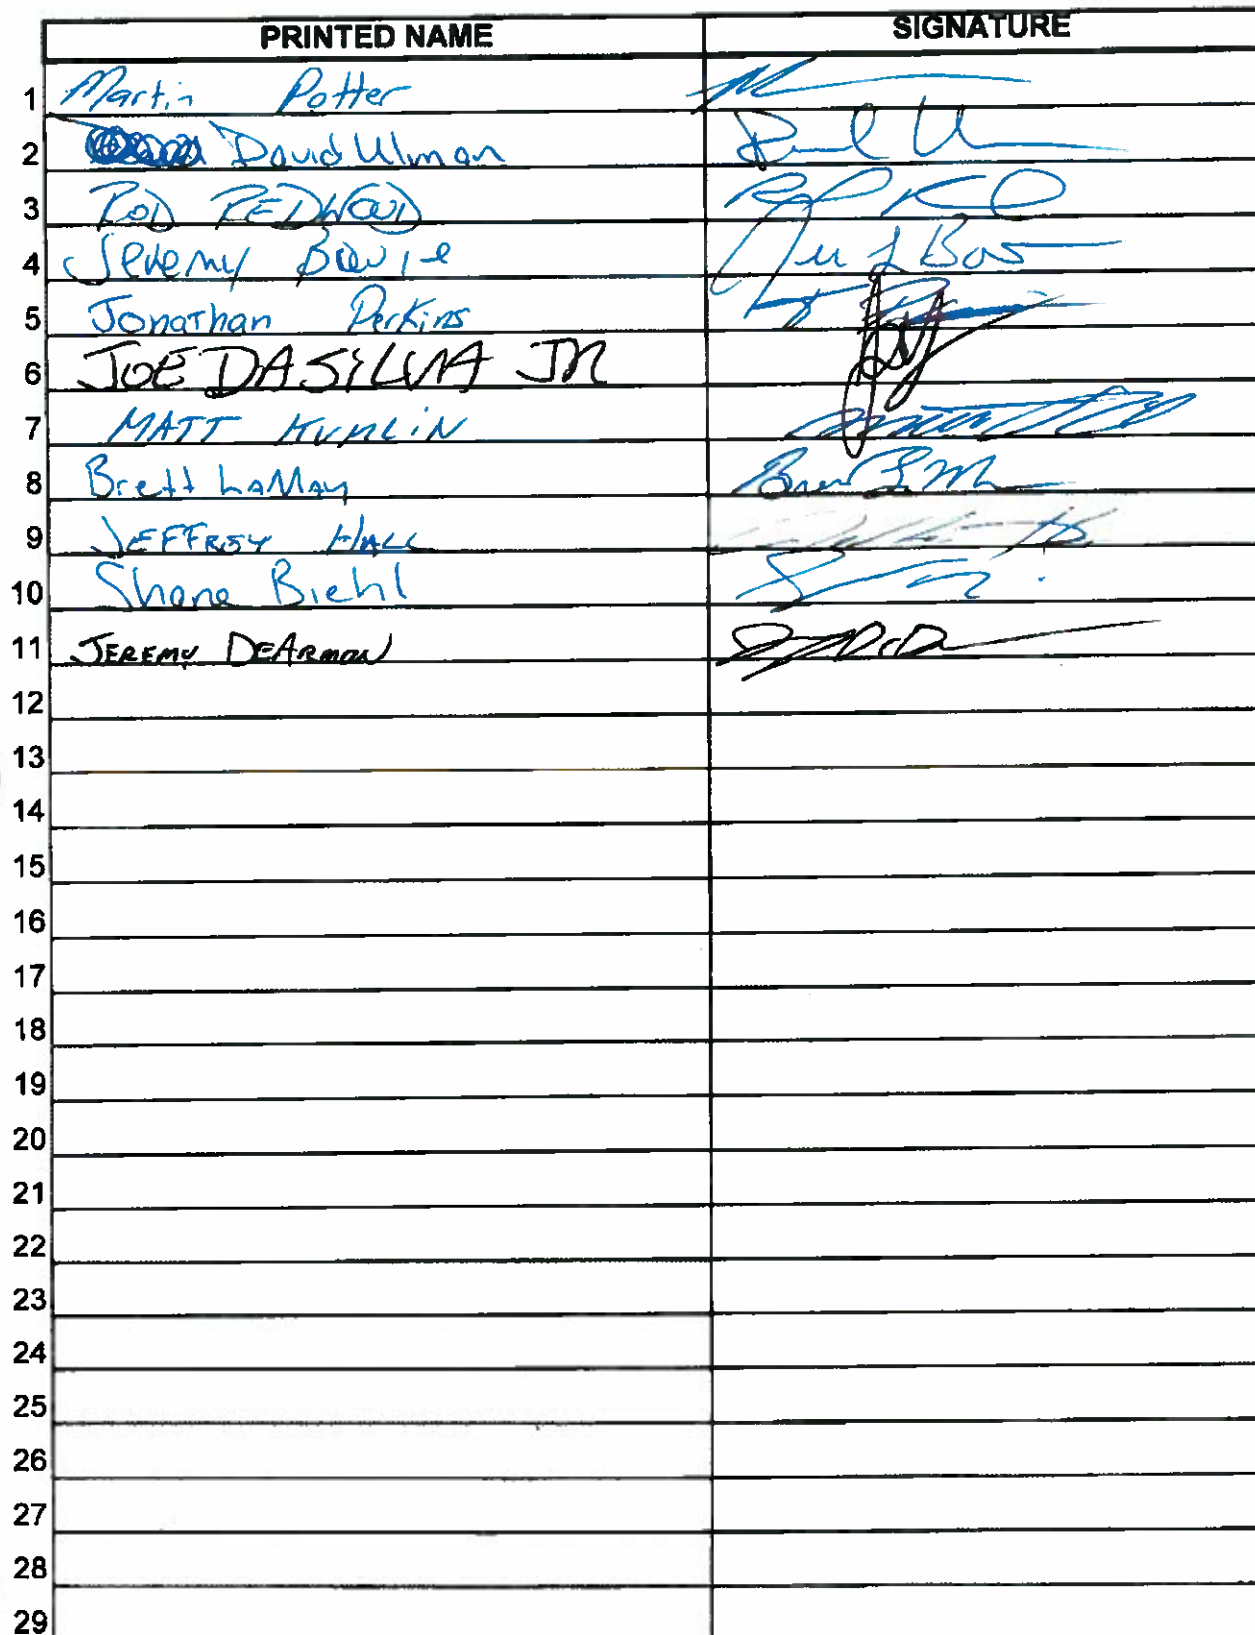 PRINTED NAME SIGNATURE
1 Martin Potter
2 David Ulman
3 ROD REDWOOD
4 Jeremy Bowie
5 Jonathan Perkins
6 JOE DASILVA JR
7 MATT KUMLIN
8 Brett LaMay
9 JEFFREY HALL
10 Shane Biehl
11 JEREMY DEARMON
12
13
14
15
16
17
18
19
20
21
22
23
24
25
26
27
28
29